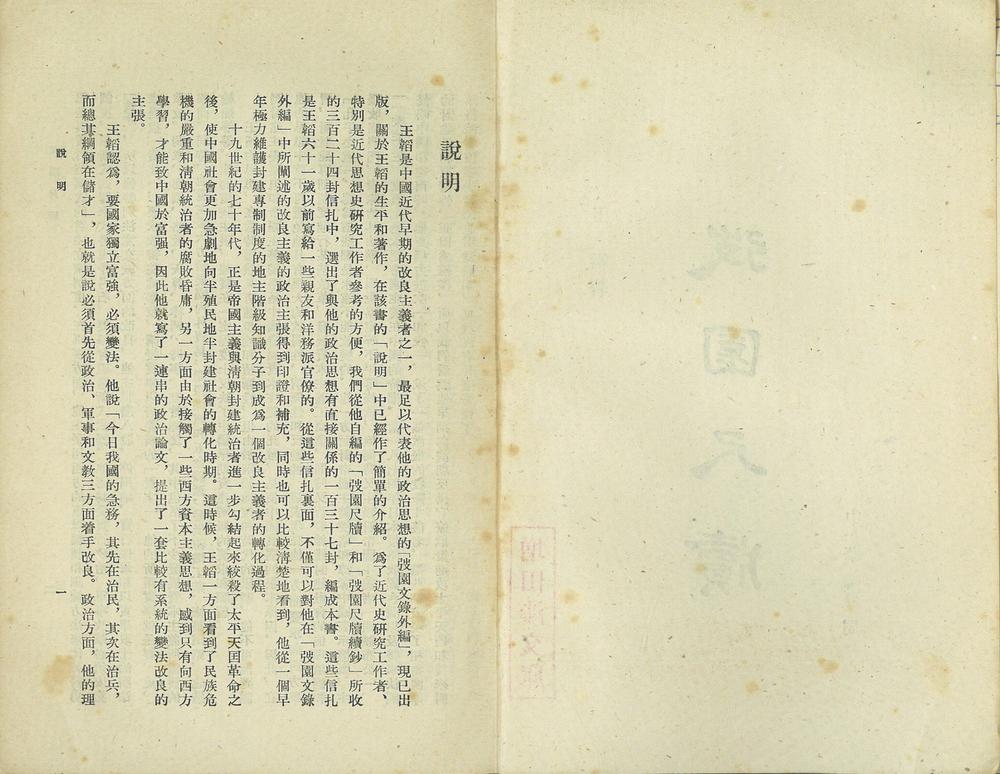 說明
王韜是中國近代早期的改良主義者之一，最足以代表他的政治思想的「弢園文錄外編」，現已出
版，關於王韜的生平和著作，在該書的「說明」中已經作了簡單的介紹。爲了近代史研究工作者、
特別是近代思想史研究工作者參考的方便，我們從他自編的「弢園尺牘」和「弢園尺牘續鈔」所收
的三百二十四封信扎中，選出了與他的政治思想有直接關係的一百三十七封，編成本書。這些信扎
是王韜六十一歲以前寫給一些親友和洋務派官僚的。從這些信扎裏面，不僅可以對他在「弢園文錄
外編」中所闡述的改良主義的政治主張得到印證和補充，同時也可以比較清楚地看到，他從一個早
年極力維護封建專制制度的地主階級知識分子到成爲一個改良主義者的轉化過程。
十九世紀的七十年代，正是帝國主義與清朝封建統治者進一步勾結起來絞殺了太平天囯革命之
後，使中國社會更加急劇地向半殖民地半封建社會的轉化時期。這時候，王韜一方面看到了民族危
機的嚴重和清朝統治者的腐敗昏庸，另一方面由於接觸了一些西方資本主義思想，感到只有向西方
學習，才能致中國於富强，因此他就寫了一連串的政治論文，提出了一套比較有系統的變法改良的
主張。
王韜認爲，要國家獨立富強，必須變法。他說「今日我國的急務，其先在治民，其次在治兵，
而總其綱領在儲才」，也就是說必須首先從政治、軍事和文教三方面着手改良。政治方面，他的理
說明
一